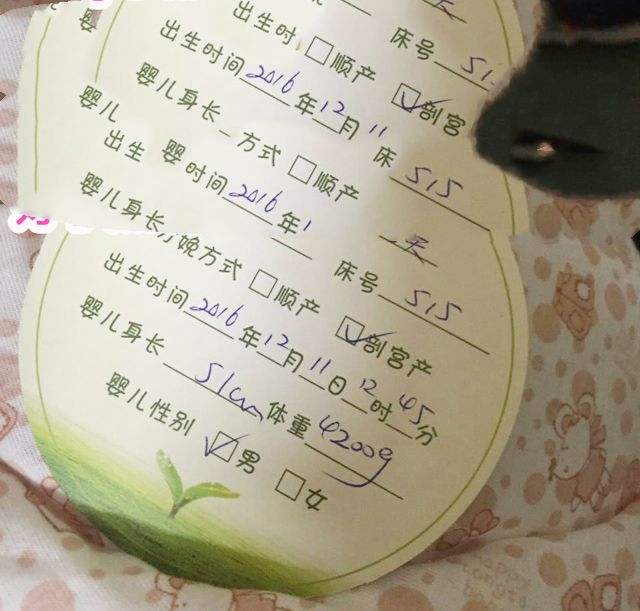 婴
出生时 □顺产 床号 51
出生时间2016年12月11 ☑剖宫
婴儿身长 方式 □顺产 床 515
婴儿
出生 婴时间2016年1
婴儿身长 娩方式 □顺产 床号 515
天
出生时间2016年12月11日12时45分 ☑剖宫产
婴儿身长 51cm 体重4200g
婴儿性别 ☑男 □女